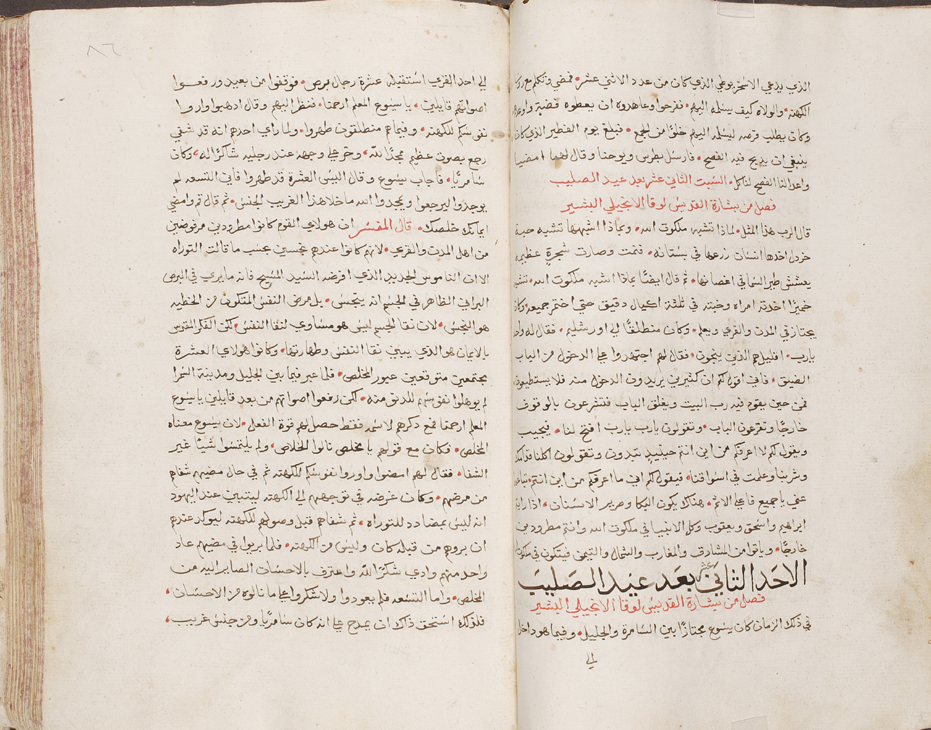 الذي يدعي الاسخريوطي الذي كان من عدد الاثني عشر فمضي وتكلم مع روسا
الكهنه والولاه كيف يسلمه اليهم ففرحوا وعاهدوه ان يعطوه فضة
وكان يطلب فرصه ليسلمه اليهم خلوًا من الجمع فبلغ يوم الفطير الذي كان
ينبغي ان يذبح فيه الفصح فارسل بطرس ويوحنا وقال لهما امضيا
واعدا لنا الفصح لناكل السبت الثاني عشر بعد عيد الصليب
فصل من بشارة القديس لوقا الانجيلي البشير
قال الرب هذا المثل لماذا تشبه ملكوت الله وبماذا اشبهها تشبه حبة
خردل اخذها انسان زرعها في بستانه فنمت وصارت شجرة عظيمه
يعشش طير السما في اغصانها ثم قال ايضًا بماذا اشبه ملكوت الله تشبه
خميرًا اخذته امراه وخبته في ثلثة اكيال دقيق حتي اختمر جميعه
يجتاز في المدن والقري ويعلم وكان منطلقًا الي اورشليم فقال له واحد
يارب اقليل هم الذين ينجون فقال لهم اجتهدوا علي الدخول من الباب
الضيق فاني اقول لكم ان كثيرين يريدون الدخول منه فلا يستطيعون
فمن حين يقوم فيه رب البيت ويغلق الباب فتشرعون بالوقوف
خارجًا وتقرعون الباب وتقولون يارب يارب افتح لنا فيجيب
ويقول لكم لا اعرفكم من اين انتم حينيذ تبتدون وتقولون اكلنا قدامك
وشربنا وعلمت في اسواقنا فيقول لكم اني ما اعرفكم من اين انتم تباعدوا
عني يا جميع فاعلي الاثم هناك يكون البكا وصرير الاسنان اذا رايتم
ابراهيم واسحق ويعقوب وكل الانبيا في ملكوت الله وانتم مطرودين
خارجًا وياتوا من المشارق والمغارب والشمال والتيمن فيتكون في ملكوت
الاحد الثاني عشر بعد عيد الصليب
فصل من بشارة القديس لوقا الانجيلي البشير
في ذلك الزمان كان يسوع مجتازًا بين السامرة والجليل وفيما هو داخل
الي
٨٦
الي احد القري استقبله عشرة رجال برص فوقفوا من بعيد ورفعوا
اصواتهم قايلين يا يسوع المعلم ارحمنا فنظر اليهم وقال اذهبوا واروا
نفوسكم للكهنه وفيما هم منطلقون طهروا ولما راي احدهم انه قد شفي
رجع بصوت عظيم مجدًا لله وخر علي وجهه عند رجليه شاكرًا له وكان
سامريًا فاجاب يسوع وقال اليس العشرة قد طهروا فاين التسعه لم
يوجدوا ليرجعوا ويمجدوا الله ما خلا هذا الغريب الجنس ثم قال قم وامضي
ايمانك خلصك قال المفسر ان هولاي القوم كانوا مطرودين مرفوضين
من اهل المدن والقري لانهم كانوا عندهم نجسين بحسب ما قالت التوراه
الا ان الناموس الجديد الذي افرضه السيد المسيح فانه ما يري في البرص
البراني الظاهر في الجسم انه ينجس بل مرض النفس المتكون من الخطيه
هو النجس لان نقا الجسم ليس هو مساوي لنقا النفس لكن الفكر المقدس
بالايمان هو الذي يبين نقا النفس وطهارتها وكانوا هولاي العشرة
مجتمعين متوقعين عبور المخلص فلما عبر فيما بين الجليل ومدينة السمرا
لم يوهلوا نفوسهم للدنو منه لكن رفعوا اصواتهم من بعد قايلين يا يسوع
المعلم ارحمنا فمع ذكرهم لاسمه فقط حصل لهم قوة الفعل لان يسوع معناه
المخلص فكان مع قولهم يا مخلص نالوا الخلاص ولم يلتمسوا شيًا غير
الشفا فقال لهم امضوا واوروا نفوسكم للكهنه ثم في حال مضيهم شفاهم
من مرضهم وكان غرضه في توجههم الي الكهنه ليتبين عند اليهود
انه ليس بمضادد للتوراه ثم شفاهم قبل وصولهم للكهنه ليوكد عندهم
ان بروهم من قبله كان وليس من الكهنه فلما بريوا في مضيهم عاد
واحد منهم وادي شكر الله واعترف بالاحسان الصاير اليه من
المخلص واما التسعه فلم يعودوا ولا شكروا علي ما نالوه من الاحسان
فلذلك استحق ذاك ان يمدح علي انه كان سامريًا ومن جنس غريب